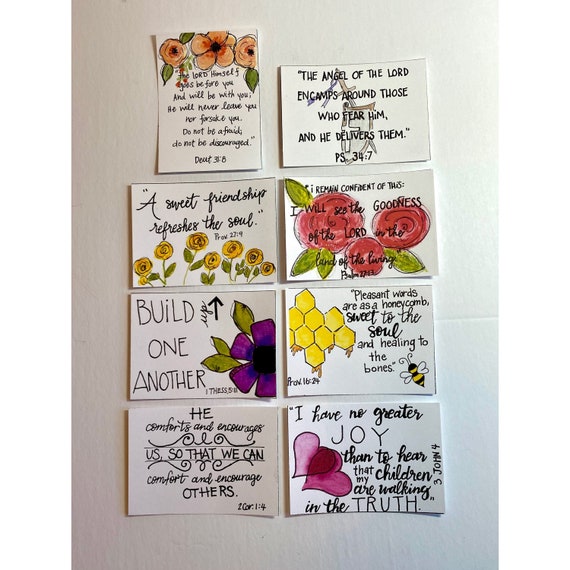 The LORD Himself
goes before you
And will be with you;
He will never leave you
nor forsake you.
Do not be afraid;
do not be discouraged."
Deut 31:8
"THE ANGEL OF THE LORD
ENCAMPS AROUND THOSE
WHO FEAR HIM,
AND HE DELIVERS THEM."
PS. 34:7
"A sweet friendship
refreshes the soul."
Prov. 27:9
"i REMAIN CONFIDENT OF THIS:
I WILL see the GOODNESS
of the LORD in the
land of the living.
Psalm 27:13
BUILD up
ONE
ANOTHER
1 THESS 5:11
"Pleasant words
are as a honeycomb,
sweet to the
soul
and healing to
the
bones."
Prov. 16:24
HE
comforts and encourages
US, SO THAT WE CAN
comfort and encourage
OTHERS.
2 Cor. 1:4
"I have no greater
JOY
than to hear
that my children
are walking
in the TRUTH."
3 JOHN 4